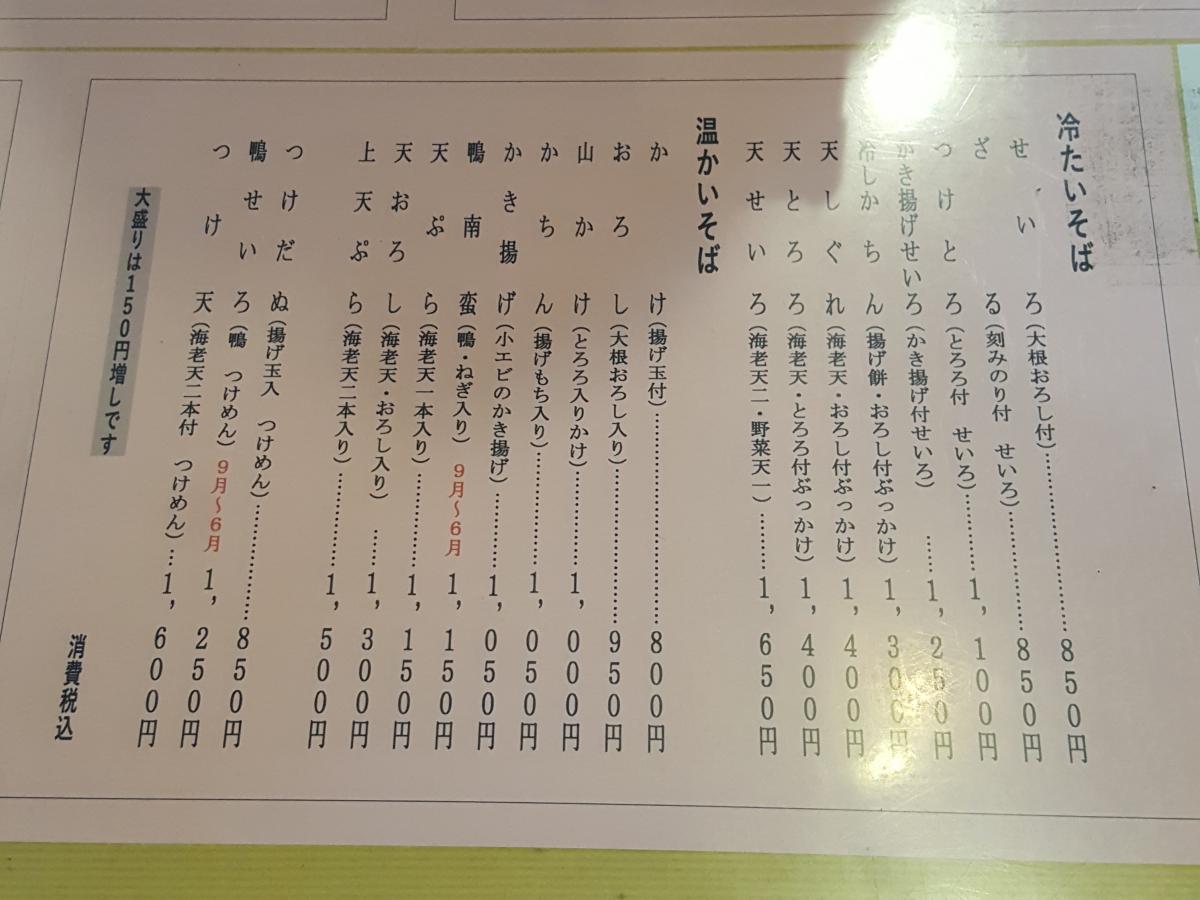 冷たいそば
せいろ(大根おろし付)……………850円
ざる(刻みのり付 せいろ)…………850円
つけとろろ(とろろ付 せいろ)………1,100円
かき揚げせいろ(かき揚げ付せいろ) ……1,250円
冷しかちん(揚げ餅・おろし付ぶっかけ)1,300円
天しぐれ(海老天・おろし付ぶっかけ)1,400円
天とろろ(海老天・とろろ付ぶっかけ)1,400円
天せいろ(海老天二・野菜天一)………1,650円
温かいそば
かけ(揚げ玉付)……………………800円
おろし(大根おろし入り)……………950円
山かけ(とろろ入りかけ)…………1,000円
かちん(揚げもち入り)……………1,050円
かき揚げ(小エビのかき揚げ)………1,050円
鴨南蛮(鴨・ねぎ入り) 9月～6月 1,150円
天ぷら(海老天一本入り)…………1,150円
天おろし(海老天・おろし入り) ……1,300円
上天ぷら(海老天二本入り)…………1,500円
つけだぬ(揚げ玉入 つけめん)…………850円
鴨せいろ(鴨 つけめん) 9月～6月 1,250円
つけ天(海老天二本付 つけめん)…1,600円
大盛りは150円増しです
消費税込